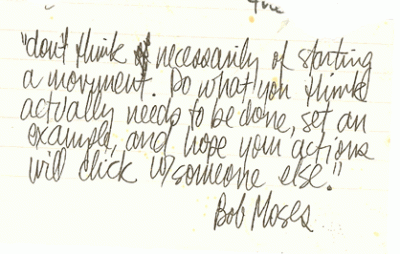 true
"don't think necessarily of starting
a movement. Do what you think
actually needs to be done, set an
example, and hope your actions
will click w/someone else."
Bob Moses